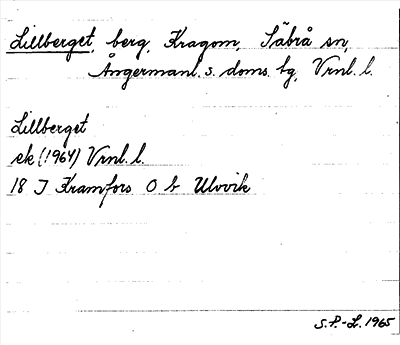 Lillberget, berg, Kragom, Säbrå sn,
Ångermanl. s. doms. bg, Vrnl. l.
Lillberget
ek (1964) Vrnl. l.
18 J Kramfors O b Ulvvik
S.P.-L. 1965